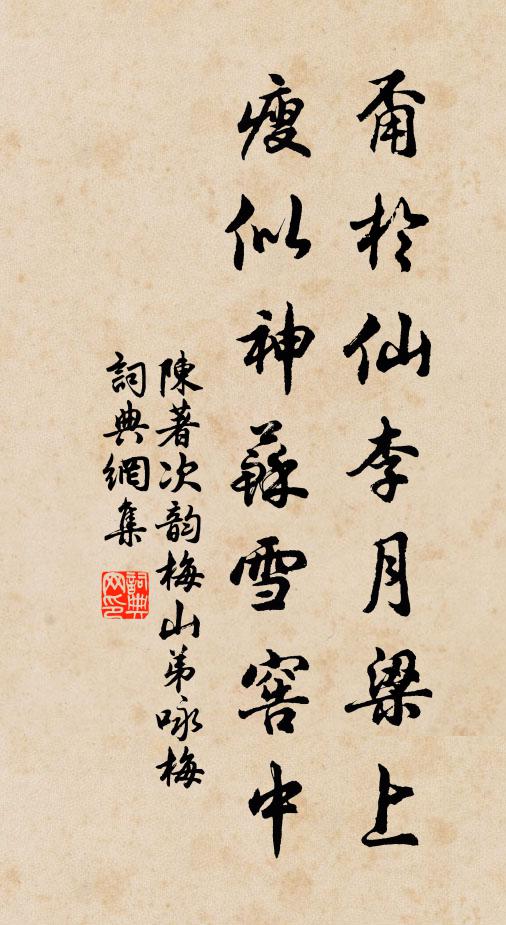 甭於仙李月梁上
瘦似神蘇雪窖中
陳著次韵梅山弟咏梅
詞典網集
詞典
网印